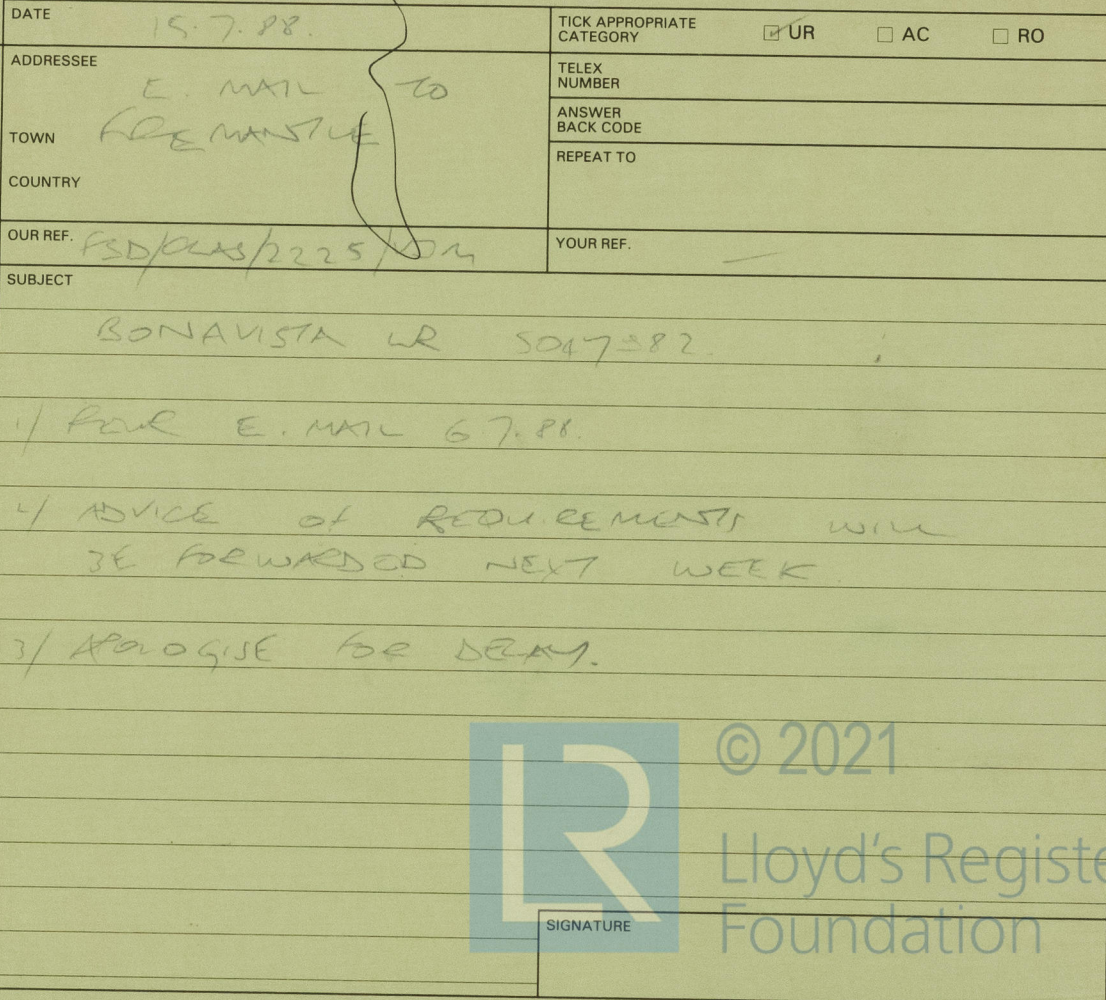 DATE 15.7.88.
TICK APPROPRIATE
CATEGORY
☑ UR ☐ AC ☐ RO
ADDRESSEE
E. MAIL TO
TOWN FREMANTLE
COUNTRY
TELEX
NUMBER
ANSWER
BACK CODE
REPEAT TO
OUR REF. FSD/CLAS/2225/
YOUR REF. —
SUBJECT
BONAVISTA LR 5047382
1/ YOUR E. MAIL 6 7.88.
2/ ADVICE OF REQUIREMENTS WILL
BE FORWARDED NEXT WEEK
3/ APOLOGISE FOR DELAY.
LR
© 2021
Lloyd's Registe
Foundation
SIGNATURE